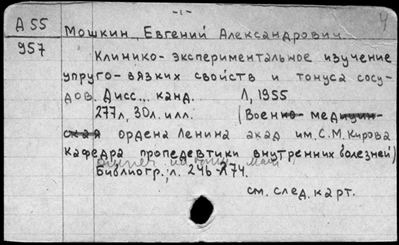 -1-
4
А 55 Мошкин, Евгений Александрович.
957
Клинико-экспериментальное изучение
упруго-вязких свойств и тонуса сосу-
дов. Дисс... канд. Л, 1955
277л, 30л. илл. (Военно-медицин-
ская ордена Ленина акад им. С.М. Кирова
Кафедра пропедевтики внутренних болезней)
Библиогр.; л. 246-274.
см. след. карт.